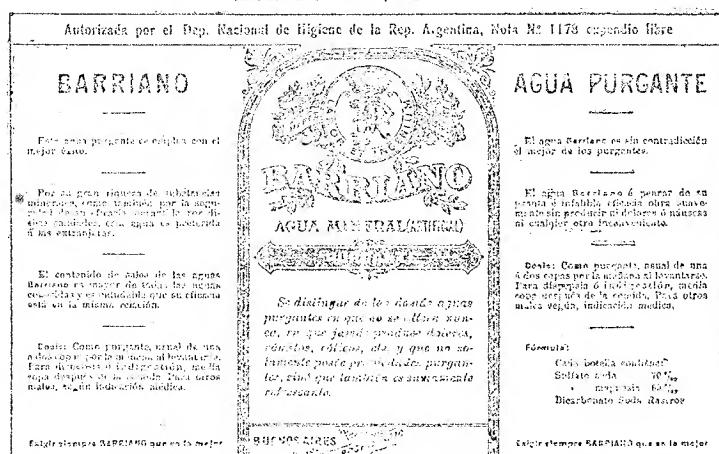 Autorizada por el Dep. Nacional de Higiene de la Rep. Argentina, Nota Nº 1178 expendio libre
BARRIANO
Esta agua purgante se emplea con el
mejor éxito.
Por su gran riqueza de substancias
minerales, como también por la segu-
ridad de su eficacia
esta agua es preferida
á las extranjeras.
El contenido de sales de las aguas
Barriano es mayor de todas las aguas
conocidas y es indudable que su eficacia
está en la misma relación.
Dosis: Como purgante, usual de una
a dos copas por la mañana al levantarse.
Para dispepsia ó indigestión, media
copa después de la comida. Para otros
males, según indicación médica.
Exigir siempre BARRIANO que es la mejor
BARRIANO
AGUA MINERAL (ARTIFICIAL)
Se distingue de las demás aguas
purgantes en que no se altera nun-
ca, en que jamás produce dolores,
náuseas, cólicos, etc. y que no so-
lamente posée propiedades purgan-
tes, sinó que también es sumamente
refrescante.
BUENOS AIRES
AGUA PURGANTE
El agua Barriano es sin contradicción
el mejor de los purgantes.
El agua Barriano á pesar de su
pronta é infalible eficacia obra suave-
mente sin producir ni dolores ó náuseas
ni cualquier otro inconveniente.
Dosis: Como purgante, usual de una
á dos copas por la mañana al levantarse.
Para dispepsia ó indigestión, media
copa después de la comida. Para otros
males según, indicación médica.
Fórmula:
Cada botella contiene:
Sulfato soda 70 ‰
" magnesia
Bicarbonato Soda Rastros
Exigir siempre BARRIANO que es la mejor